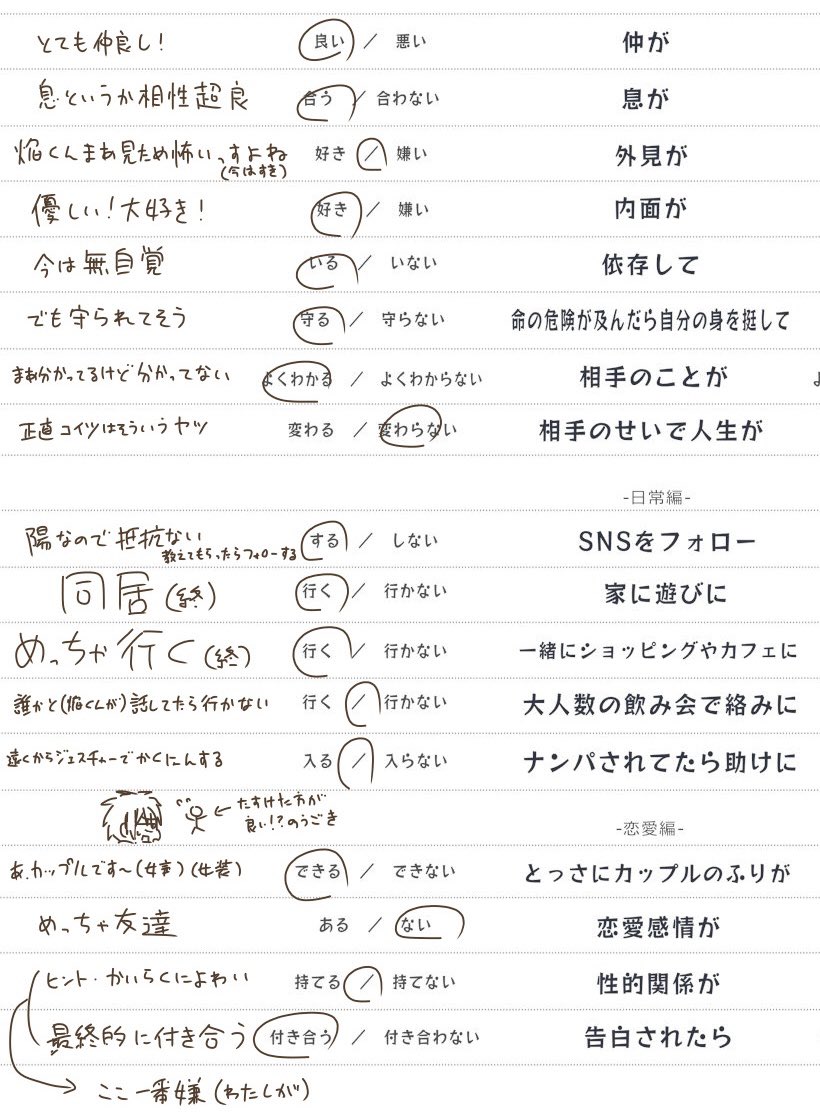 とても仲良し! 良い / 悪い 仲が
息というか相性超良 合う / 合わない 息が
焔くんまあ見ため怖いっすよね 好き / 嫌い 外見が
(今はすき)
優しい!大好き! 好き / 嫌い 内面が
今は無自覚 いる / いない 依存して
でも守られてそう 守る / 守らない 命の危険が及んだら自分の身を挺して
まあ分かってるけど分かってない よくわかる / よくわからない 相手のことが
正直コイツはそういうヤツ 変わる / 変わらない 相手のせいで人生が
-日常編-
陽なので抵抗ない する / しない SNSをフォロー
教えてもらったらフォローする
同居(終) 行く / 行かない 家に遊びに
めっちゃ行く(終) 行く / 行かない 一緒にショッピングやカフェに
誰かと(焔くんが)話してたら行かない 行く / 行かない 大人数の飲み会で絡みに
遠くからジェスチャーでかくにんする 入る / 入らない ナンパされてたら助けに
←たすけた方が
良い!?のうごき
-恋愛編-
あ、カップルです〜(女事)(女装) できる / できない とっさにカップルのふりが
めっちゃ友達 ある / ない 恋愛感情が
ヒント・かいらくによわい 持てる / 持てない 性的関係が
最終的に付き合う 付き合う / 付き合わない 告白されたら
ここ一番嫌(わたしが)